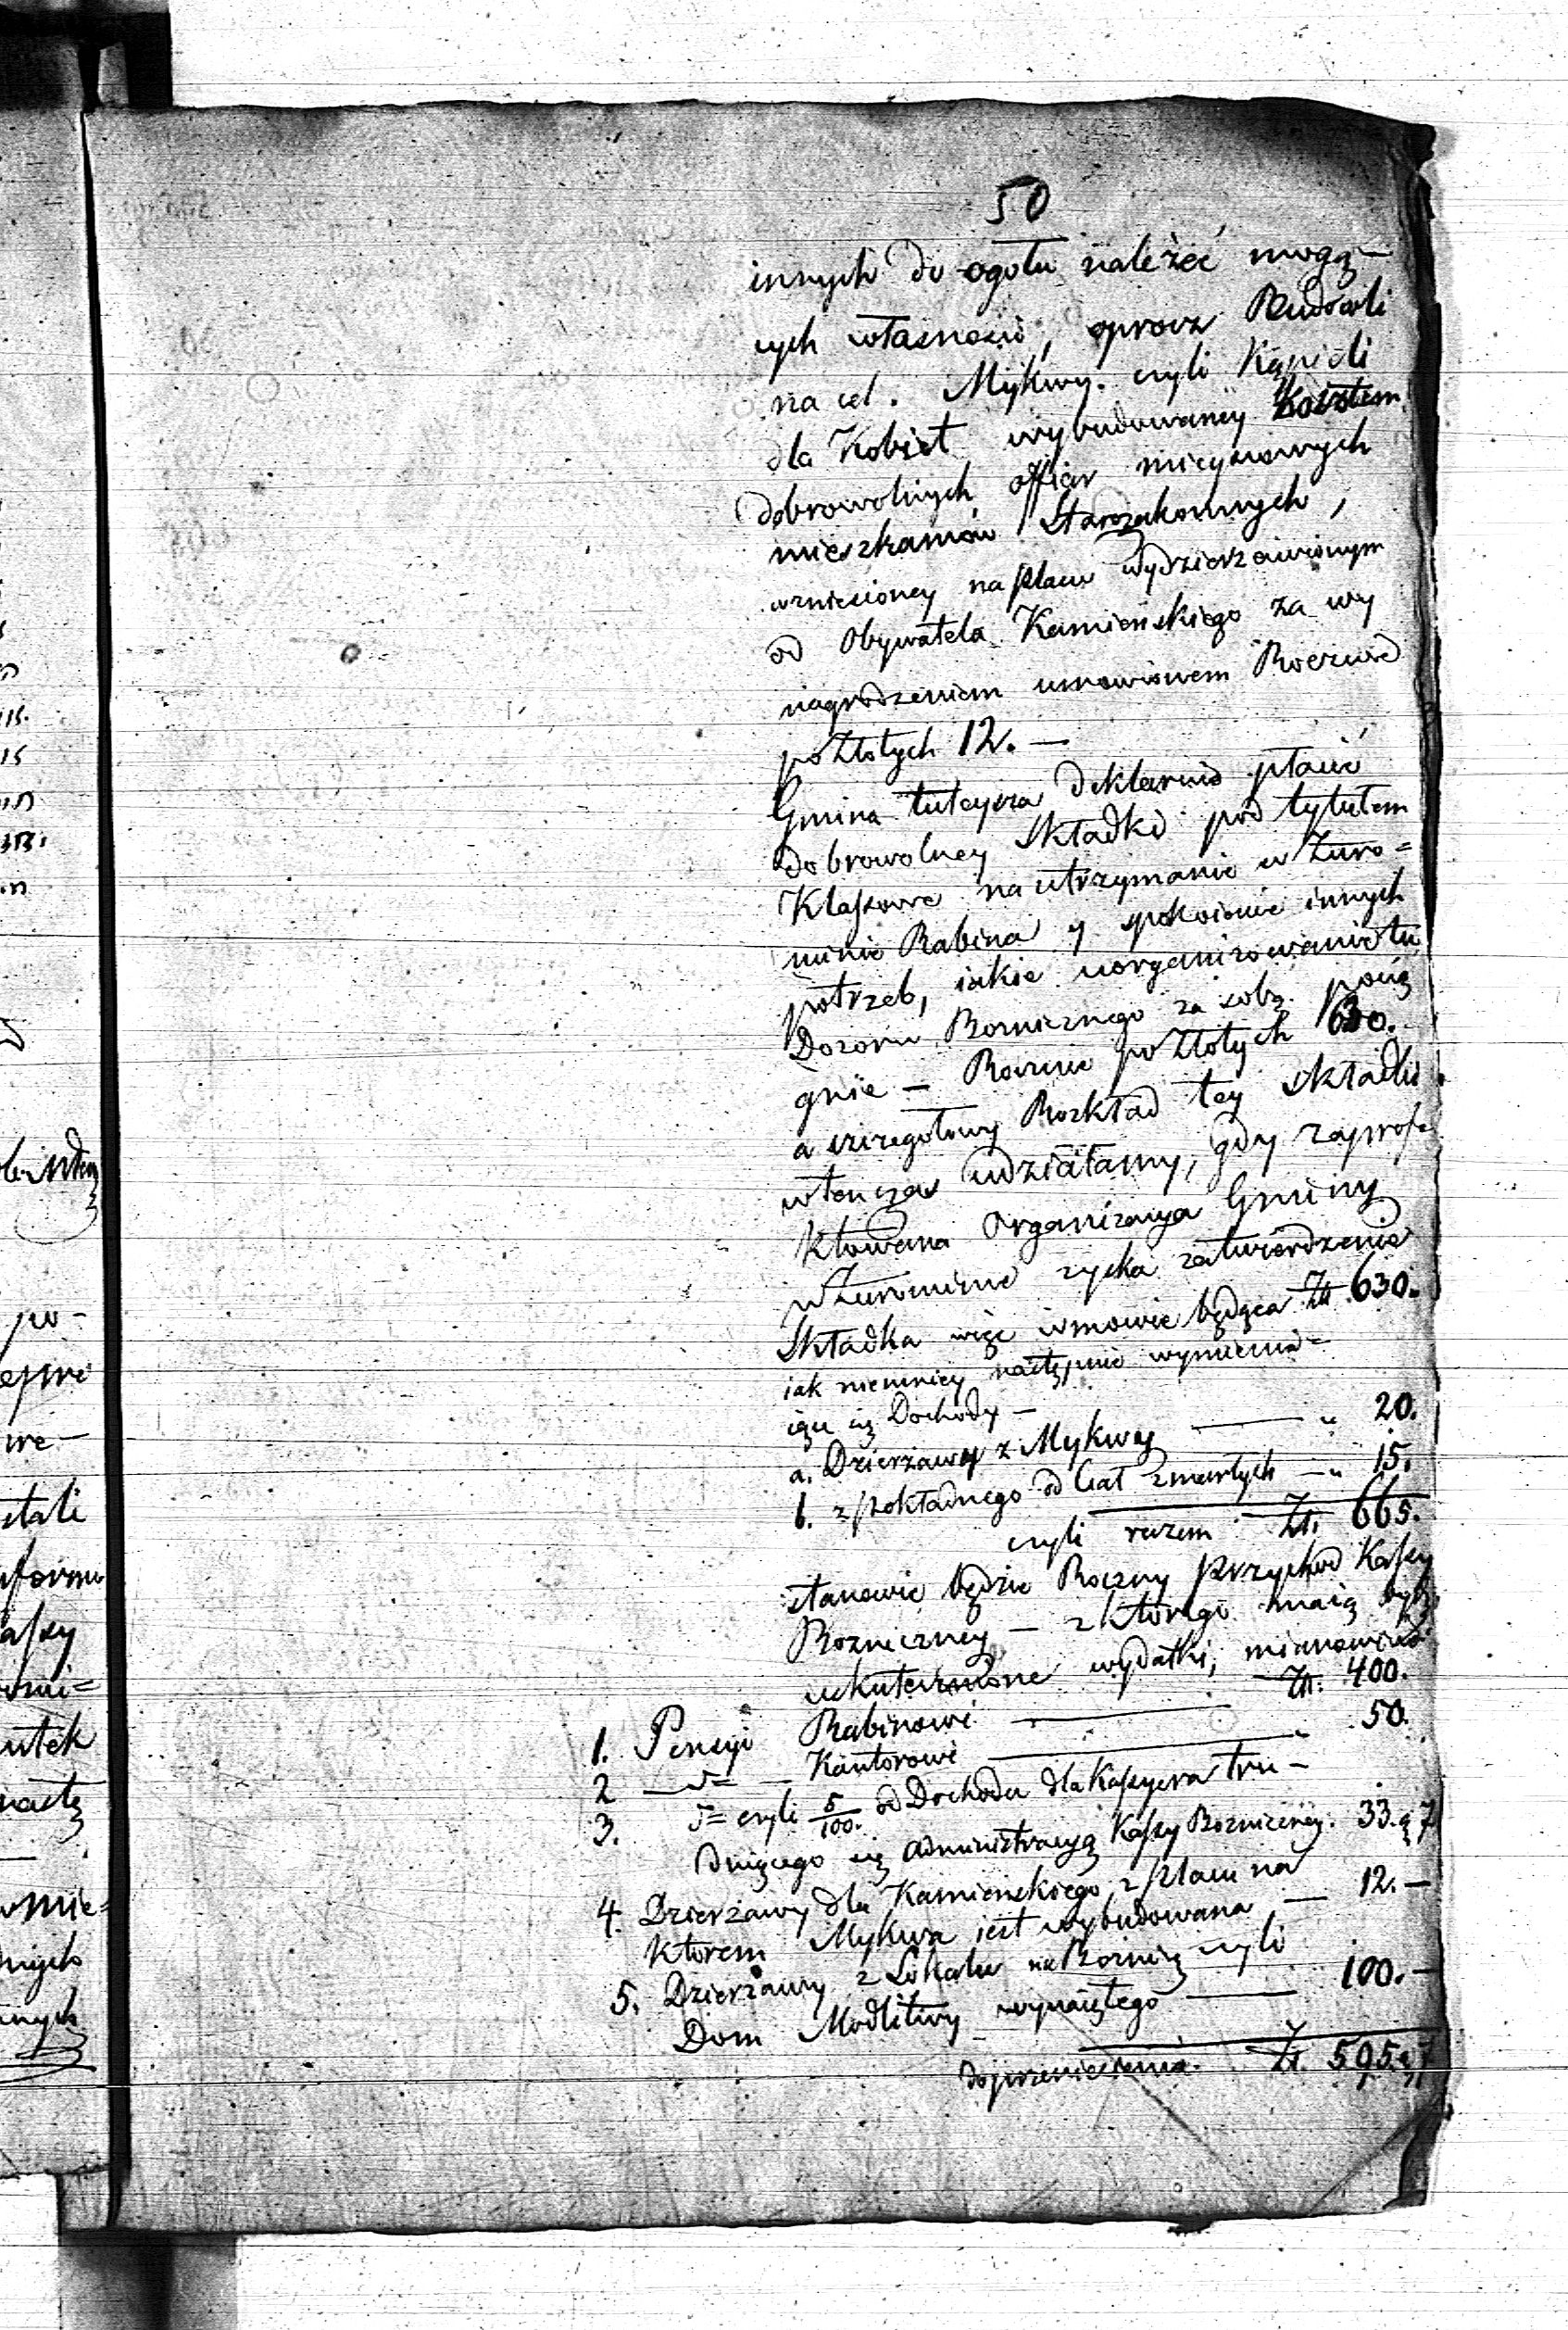 50
innych do ogołu należeć mogą-
cych własności, oprocz Budowli
na cel. Mykwy. czyli Kąpieli
dla Kobiet wybudowaney Kosztem
dobrowolnych offiar mieyscowych
mieszkańców Starozakonnych,
wzniesioney na placu wydzierzawionym
od Obywatela Kamieńskiego za wy
nagrodzeniem umowionem Rocznie
po Złotych 12. —
Gmina tuteysza deklaruie płacić
dobrowolney Składki pod tytułem
Klassowe na utrzymanie w Żuro=
minie Rabina y zpokoienie innych
potrzeb, iakie uorganizowanie tu
Dozoru Bozniczego za sobą pocią
gnie — Rocznie po Złotych 630.
a szczegołowy Rozkład tey składki
wtenczas udziałamy, gdy zaproje
ktowana Organizacya Gminy
w Żurominie zyska zatwierdzenie
Składka więc w mowie będąca Zł 630.
iak niemniey następnie wymienia=
iące się Dochody —
a. Dzierżawy z Mykwy — „ 20.
b. z pokładnego od Ciał zmarłych — „ 15.
czyli razem Zł. 665.
stanowić będzie Roczny przychod Kassy
Bozniczney — z ktorego maią być
uskutecznione wydatki, mianowicie
1. Pensyi Rabinowi — Zł. 400.
2 — d= — Kantorowi — „ 50.
3. d= czyli 5/100. od Dochodu dla Kassyera tru-
dniącego się administracyą Kassy Bozniczney. 33. g 7
4. Dzierżawy dla Kamieńskiego z placu na
ktorem Mykwa iest wybudowana — 12. —
5. Dzierzawy z Lokalu na Boznicę czyli
Dom Modlitwy wynaiętego — 100. —
do przeniesienia. Zł. 595. g 7